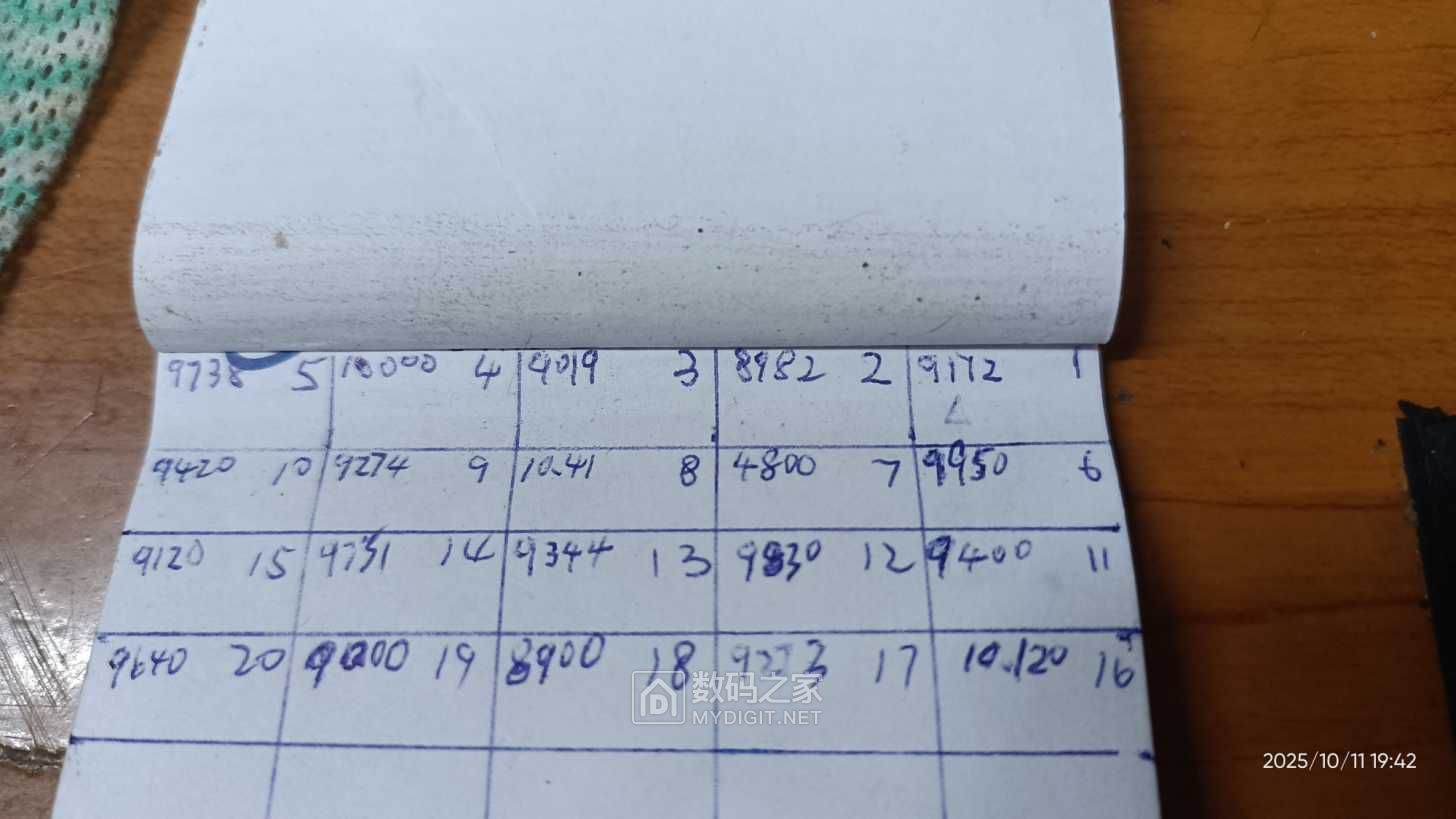 9738 5 10000 4 9019 3 8982 2 9172 1
9420 10 9274 9 10.41 8 4800 7 9950 6
9120 15 9731 14 9344 13 9830 12 9400 11
9640 20 9000 19 8900 18 9273 17 10.120 16
数码之家
MYDIGIT.NET
2025/10/11 19:42